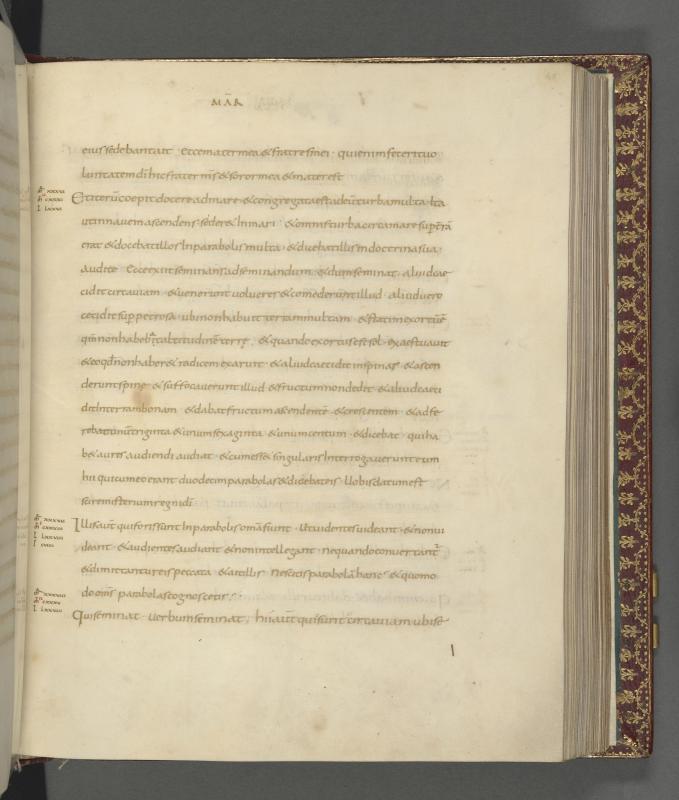 MAR
eius sedebant ait · Ecce mater mea & fratres mei · qui enim fecerit uo
luntatem dī hic frater ms & soror mea & mater est
Et iterū coepit docere ad mare · & congregata est ad eū turba multa · Ita
ut in nauem ascendens seder& In mari · & omnis turba circa mare sup terrā
erat & docebat illos In parabolis multa · & dicebat illis in doctrina sua ·
audite · Ecce exiit seminans ad seminandum · & dum seminat · Aliud ce
cidit circa uiam · & uenerunt uolucres & comederunt illud · Aliud uero
cecidit sup p&rosa · ubi non habuit terram multam · & statim exortū ē
qm̄ non habebat altitudinē terrę · & quando exortus est sol · exaestuauit
& eo qđ non haber& radicem exaruit · & aliud cecidit in spinas · & ascen
derunt spinę & suffocauerunt illud · & fructum non dedit · & aliud ceci
dit In terram bonam · & dabat fructum ascendentē · & crescentem · & adfe
rebat unū triginta & unum sexaginta · & unum centum · & dicebat · qui ha
b& aures audiendi audiat · & cum ess& singularis Interrogauerunt eum
hii qui cum eo erant duodecim parabolas · & dicebat eis · Uobis datum est
scire misterium regni dī
Illis aūt qui foris sunt In parabolis omīa fiunt · Ut uidentes uideant · & non ui
deant · & audientes audiant & non intellegant · ne quando conuertantr̄
& dimittantur eis peccata · & ait illis · Nescitis parabolā hanc · & quomo
do omīs parabolas cognoscetis ·
Qui seminat · uerbum seminat · hii aūt qui sunt circa uiam ubi se